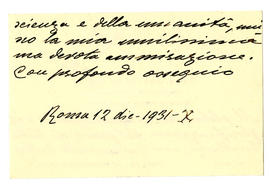 scienza e della umanità, uni
no la mia umilissima
ma devota ammirazione.
Con profondo ossequio
Roma 12 dic. 1931-X